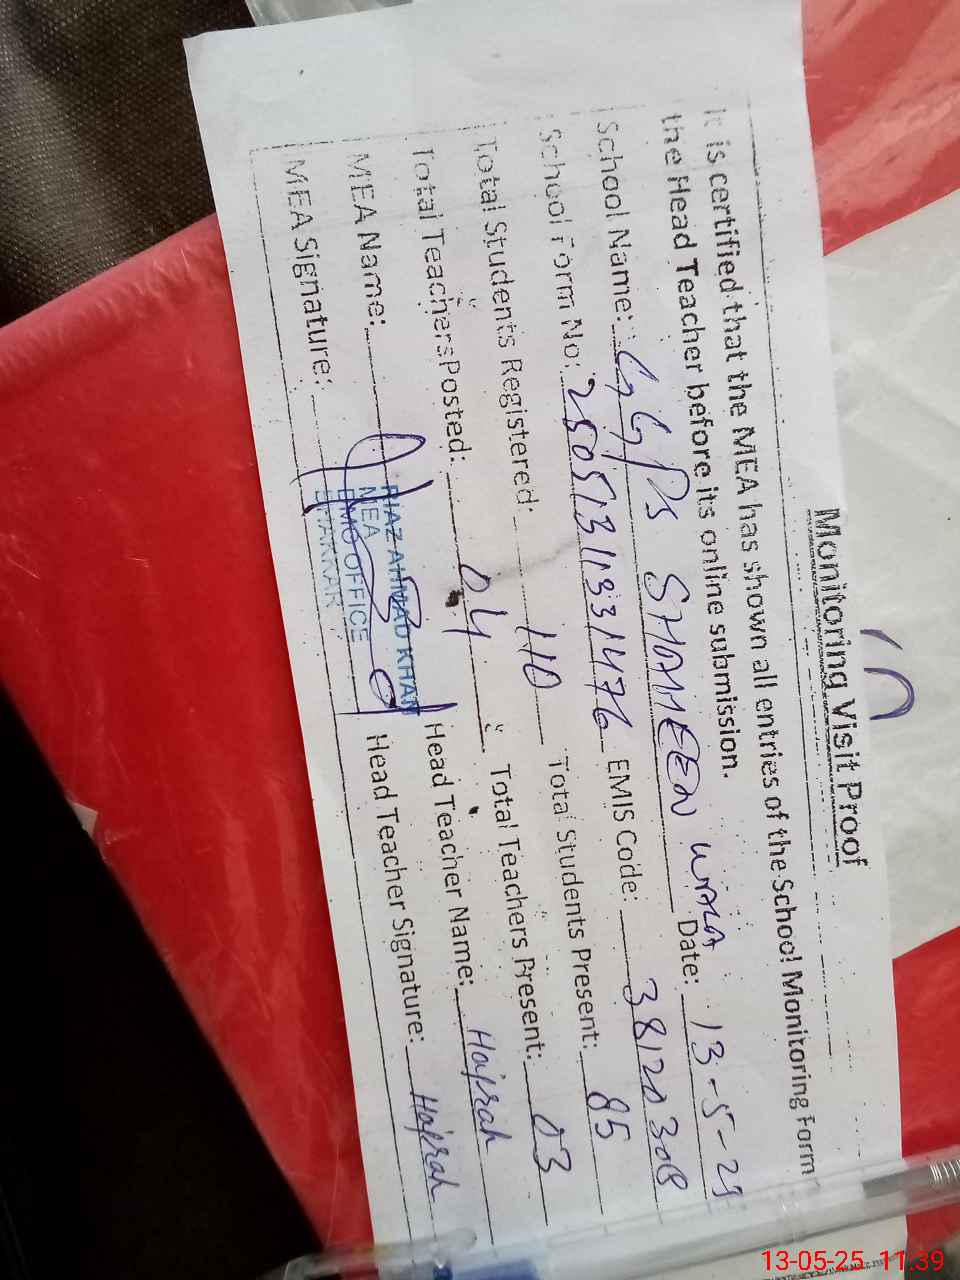 Monitoring Visit Proof
It is certified that the MEA has shown all entries of the School Monitoring Form
the Head Teacher before its online submission.
School Name: GGPS SHAHEEN WALA Date: 13-5-25
School Form No: 2505131331476 EMIS Code: 38120308
Total Students Registered: 110 Total Students Present: 85
Total Teachers Posted: 04 Total Teachers Present: 03
MEA Name: Head Teacher Name: Hajrah
MEA Signature: Head Teacher Signature: Hajrah
RIAZ AHMAD KHAN
MEA
EMO OFFICE
BHAKKAR
13-05-25 11:39